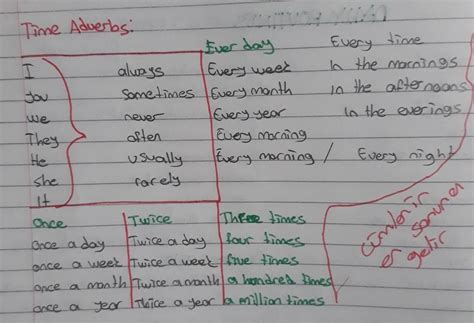 Time Adverbs:
Ever day Every time
I always Every week In the mornings
you sometimes Every month in the afternoons
we never Every year In the everings
They often Every morning
He usually Every morning / Every night
she rarely
It
Once Twice Three times
once a day Twice a day four times
once a week Twice a week five times
once a month Twice a month a hundred times
once a year Twice a year a million times
cümlenin
sonuna
getir